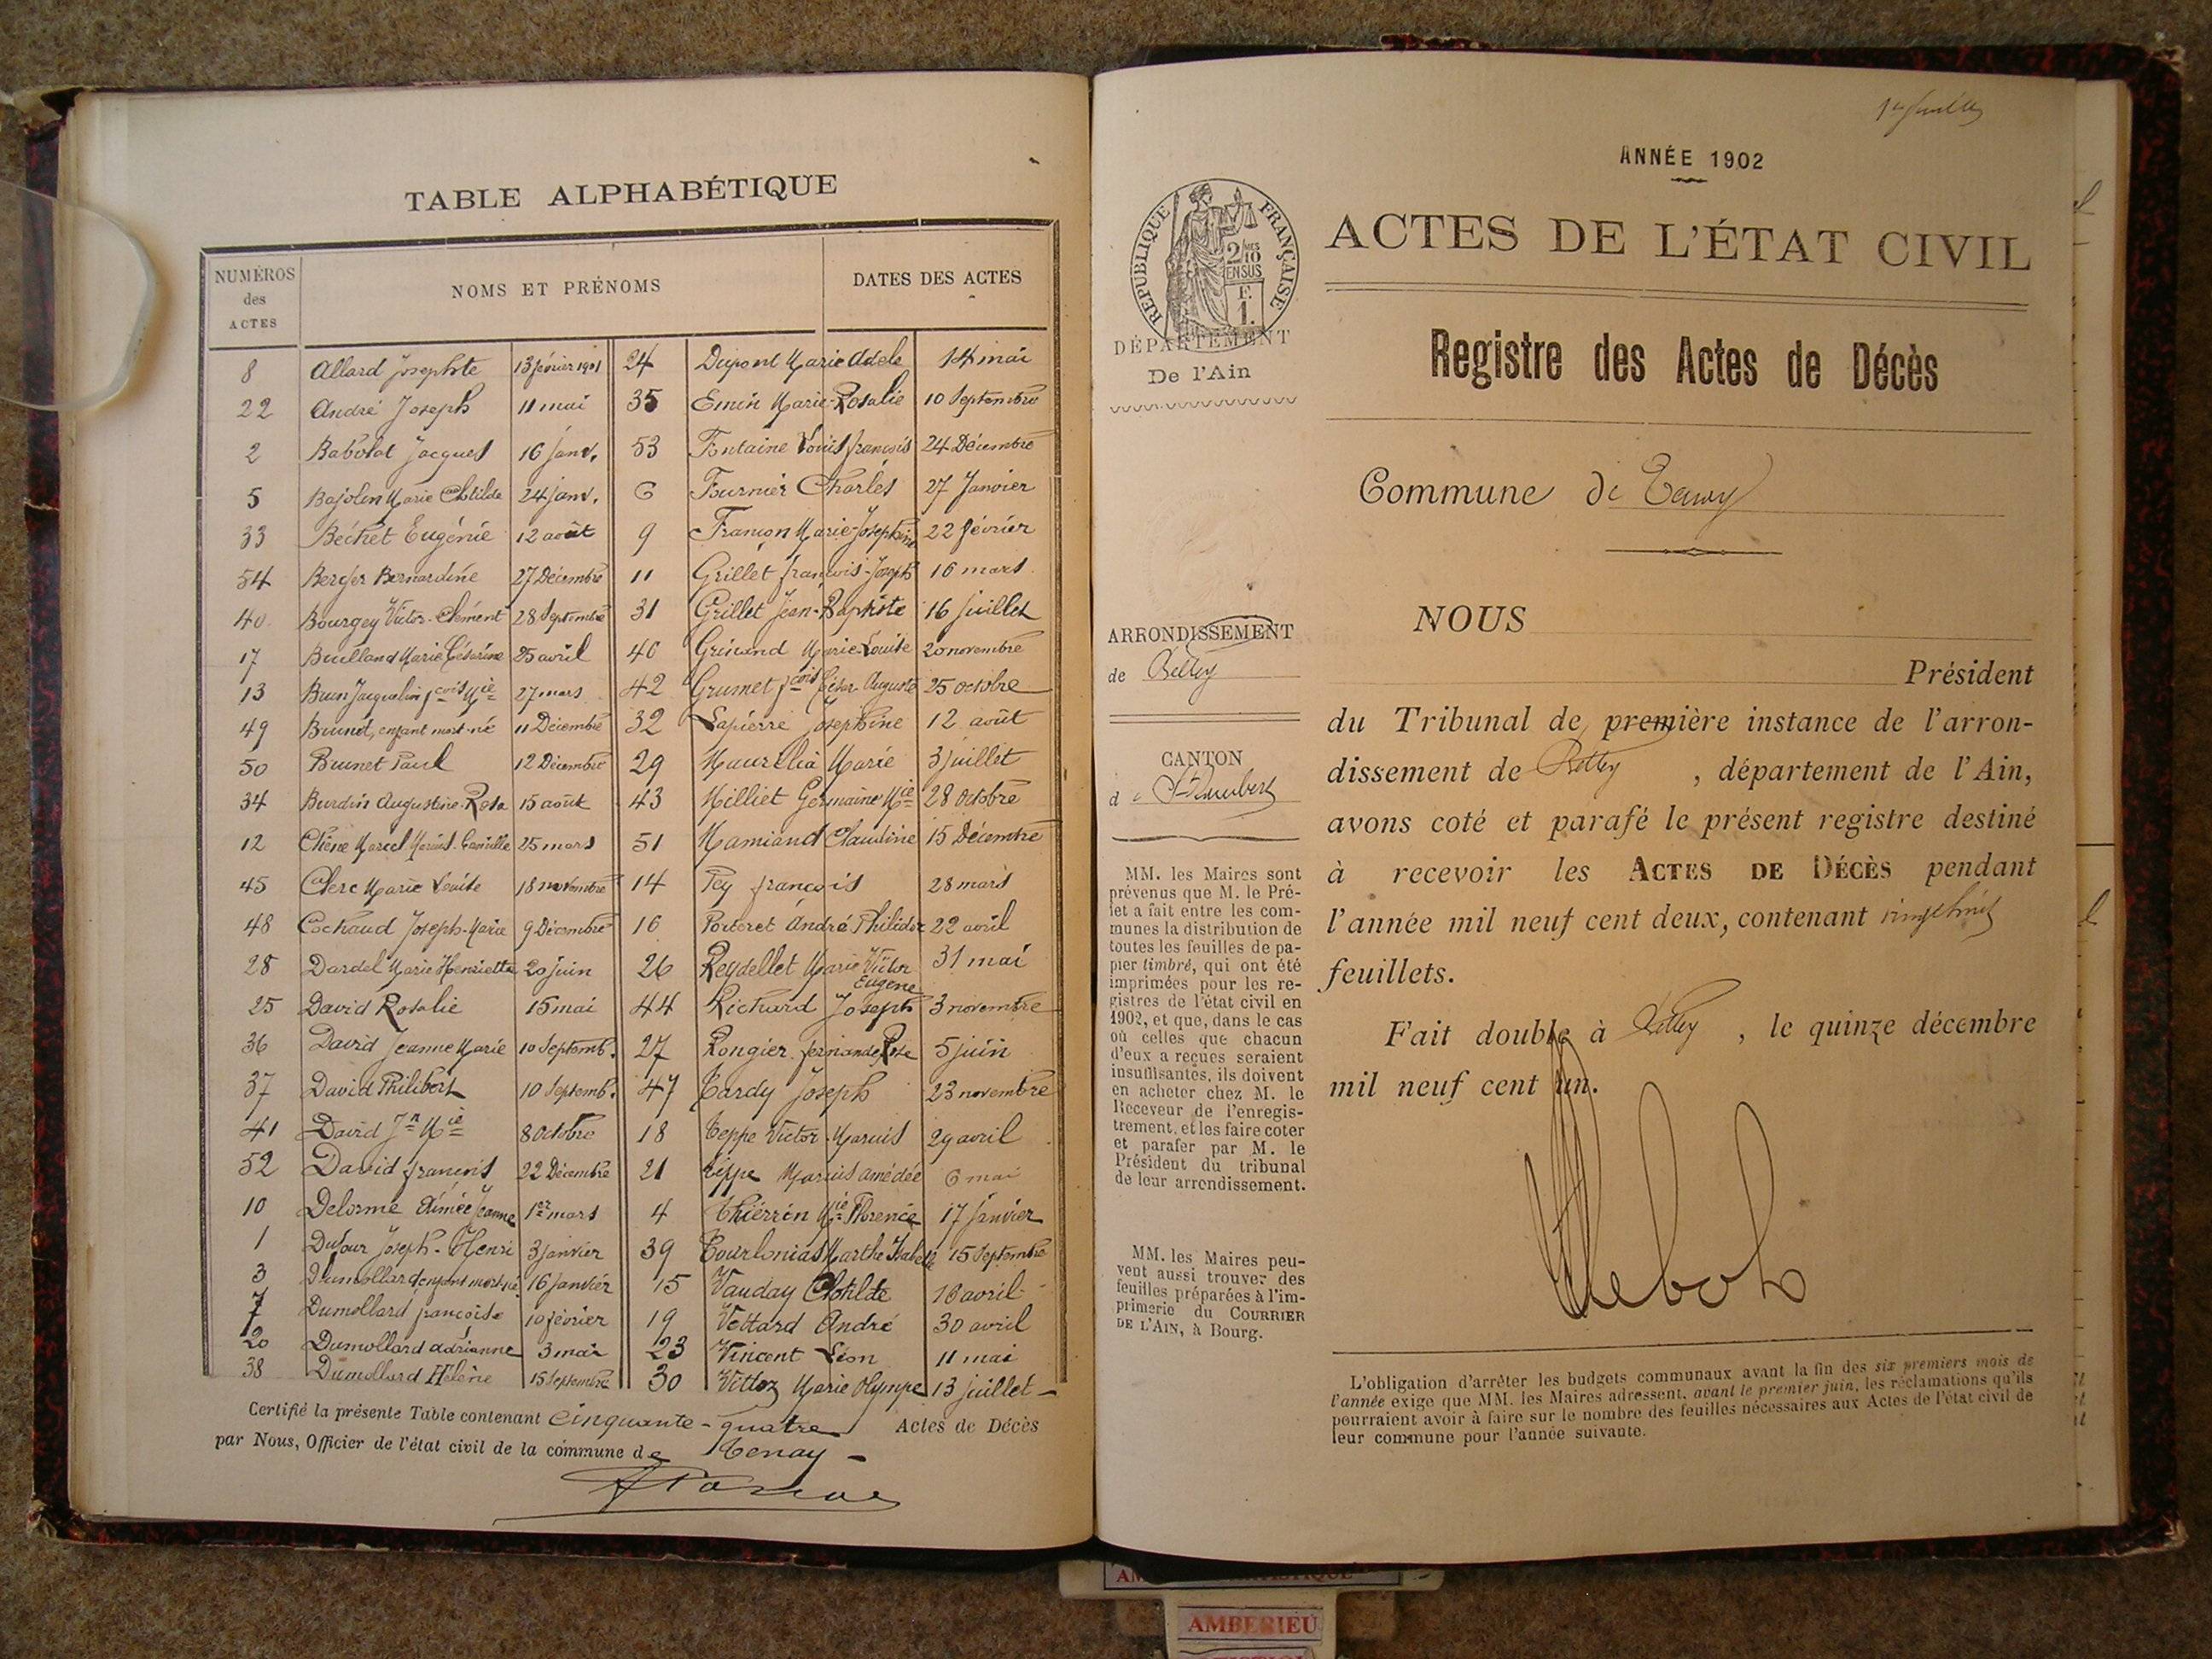 TABLE ALPHABÉTIQUE
NUMÉROS des ACTES
NOMS ET PRÉNOMS
DATES DES ACTES
8 Allard Josephte 13 février 1901
22 André Joseph 11 mai
2 Babolat Jacques 16 janv.
5 Bajolin Marie Clotilde 24 janv.
33 Béchet Eugénie 12 août
54 Berger Bernardine 27 Décembre
40 Bourgey Victor-Clément 28 Septembre
17 Marie Césarine 25 avril
13 Brun Jacqueline fcoise Mie 27 mars
49 Brunet, enfant mort-né 11 Décembre
50 Brunet Paul 12 Décembre
34 Burdin Augustine-Rosa 15 août
12 Chêne Marcel Marius Camille 25 mars
45 Clerc Marie Louise 18 novembre
48 Cochaud Joseph-Marie 9 Décembre
28 Dardel Marie Henriette 20 juin
25 David Rosalie 15 mai
36 David Jeanne Marie 10 Septemb.
37 David Philibert 10 Septemb.
41 David Jn Mie 8 Octobre
52 David françois 22 Décembre
10 Delorme Aimée Jeanne 1er mars
1 Dufour Joseph-Henri 3 janvier
3 Dumollard enfant mort-né 16 janvier
7 Dumollard françoise 10 février
20 Dumollard adrianne 3 mai
38 Dumollard Hélène 15 Septembre
24 Dupont Marie Adèle 14 mai
35 Emin Marie-Rosalie 10 Septembre
53 Fontaine Louis françois 24 Décembre
6 Fournier Charles 27 Janvier
9 Françon Marie-Josephine 22 février
11 Grillet françois-Joseph 16 mars
31 Grillet Jean-Baptiste 16 juillet
46 Marie-Louise 20 novembre
42 Grumet fcois César Auguste 25 octobre
32 Lapierre Josephine 12 août
29 Marie 3 juillet
43 Milliet Germaine Mie 28 Octobre
51 Mamiand Claudine 15 Décembre
14 Pey françois 28 mars
16 André Philidor 22 avril
26 Reydellet Marie Victor Eugène 31 mai
44 Richard Joseph 3 novembre
27 Rongier fernande Rose 5 juin
47 Tardy Joseph 23 novembre
18 Teppe Victor-Marius 29 avril
21 Teppe Marius amédée 6 mai
4 Thierrin Mie Florence 17 janvier
39 Tourlonias Marthe Isabelle 15 Septembre
15 Vauday Clotilde 16 avril
19 Vettard André 30 avril
23 Vincent Léon 11 mai
30 Vittoz Marie Olympe 13 juillet
Certifié la présente Table contenant Cinquante-quatre Actes de Décès
par Nous, Officier de l'état civil de la commune de Tenay
1er feuillet
ANNÉE 1902
RÉPUBLIQUE FRANÇAISE
2/10 EN SUS
F. 1.
DÉPARTEMENT
De l'Ain
ARRONDISSEMENT
de Belley
CANTON
de St Rambert
MM. les Maires sont
prévenus que M. le Pré-
fet a fait entre les com-
munes la distribution de
toutes les feuilles de pa-
pier timbré, qui ont été
imprimées pour les re-
gistres de l'état civil en
1902, et que, dans le cas
où celles que chacun
d'eux a reçues seraient
insuffisantes, ils doivent
en acheter chez M. le
Receveur de l'enregis-
trement, et les faire coter
et parafer par M. le
Président du tribunal
de leur arrondissement.
MM. les Maires peu-
vent aussi trouver des
feuilles préparées à l'im-
primerie du COURRIER
DE L'AIN, à Bourg.
ACTES DE L'ÉTAT CIVIL
Registre des Actes de Décès
Commune de Tenay
NOUS
Président
du Tribunal de première instance de l'arron-
dissement de Belley, département de l'Ain,
avons coté et parafé le présent registre destiné
à recevoir les ACTES DE DÉCÈS pendant
l'année mil neuf cent deux, contenant
feuillets.
Fait double à Belley, le quinze décembre
mil neuf cent un.
L'obligation d'arrêter les budgets communaux avant la fin des six premiers mois de
l'année exige que MM. les Maires adressent, avant le premier juin, les réclamations qu'ils
pourraient avoir à faire sur le nombre des feuilles nécessaires aux Actes de l'état civil de
leur commune pour l'année suivante.
AMBERIEU